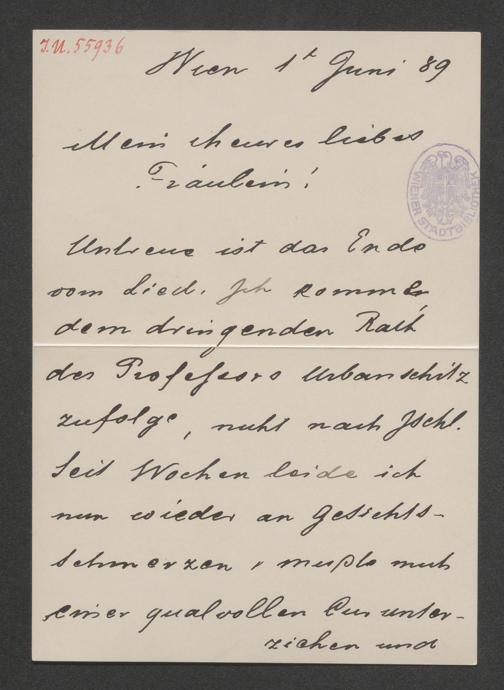 I.N. 55936
Wien 1t Juni 89
Mein theures liebes
Fräulein!
WIENER STADTBIBLIOTHEK
Untreue ist das Ende
vom Lied. Ich komme,
dem dringenden Rath
des Professors Urbanschitz
zufolge, nicht nach Ischl.
Seit Wochen leide ich
nun wieder an Gesichts-
schmerzen, mußte mich
einer qualvollen Cur unter-
ziehen und